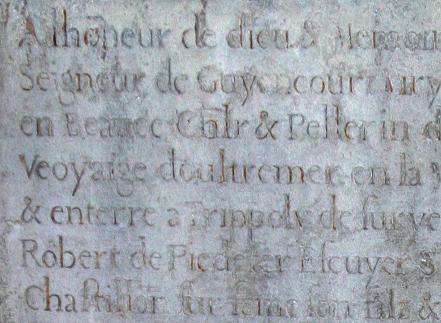 A lhoneur de dieu &
Seigneur de Guyencourt Viry
en Beauce Chlr & Pellerin
Veoyaige doultremer en la
& enterre a Trippoly de surye
Robert de Piedefer Escuyer
Chastillon sur seine son filz &